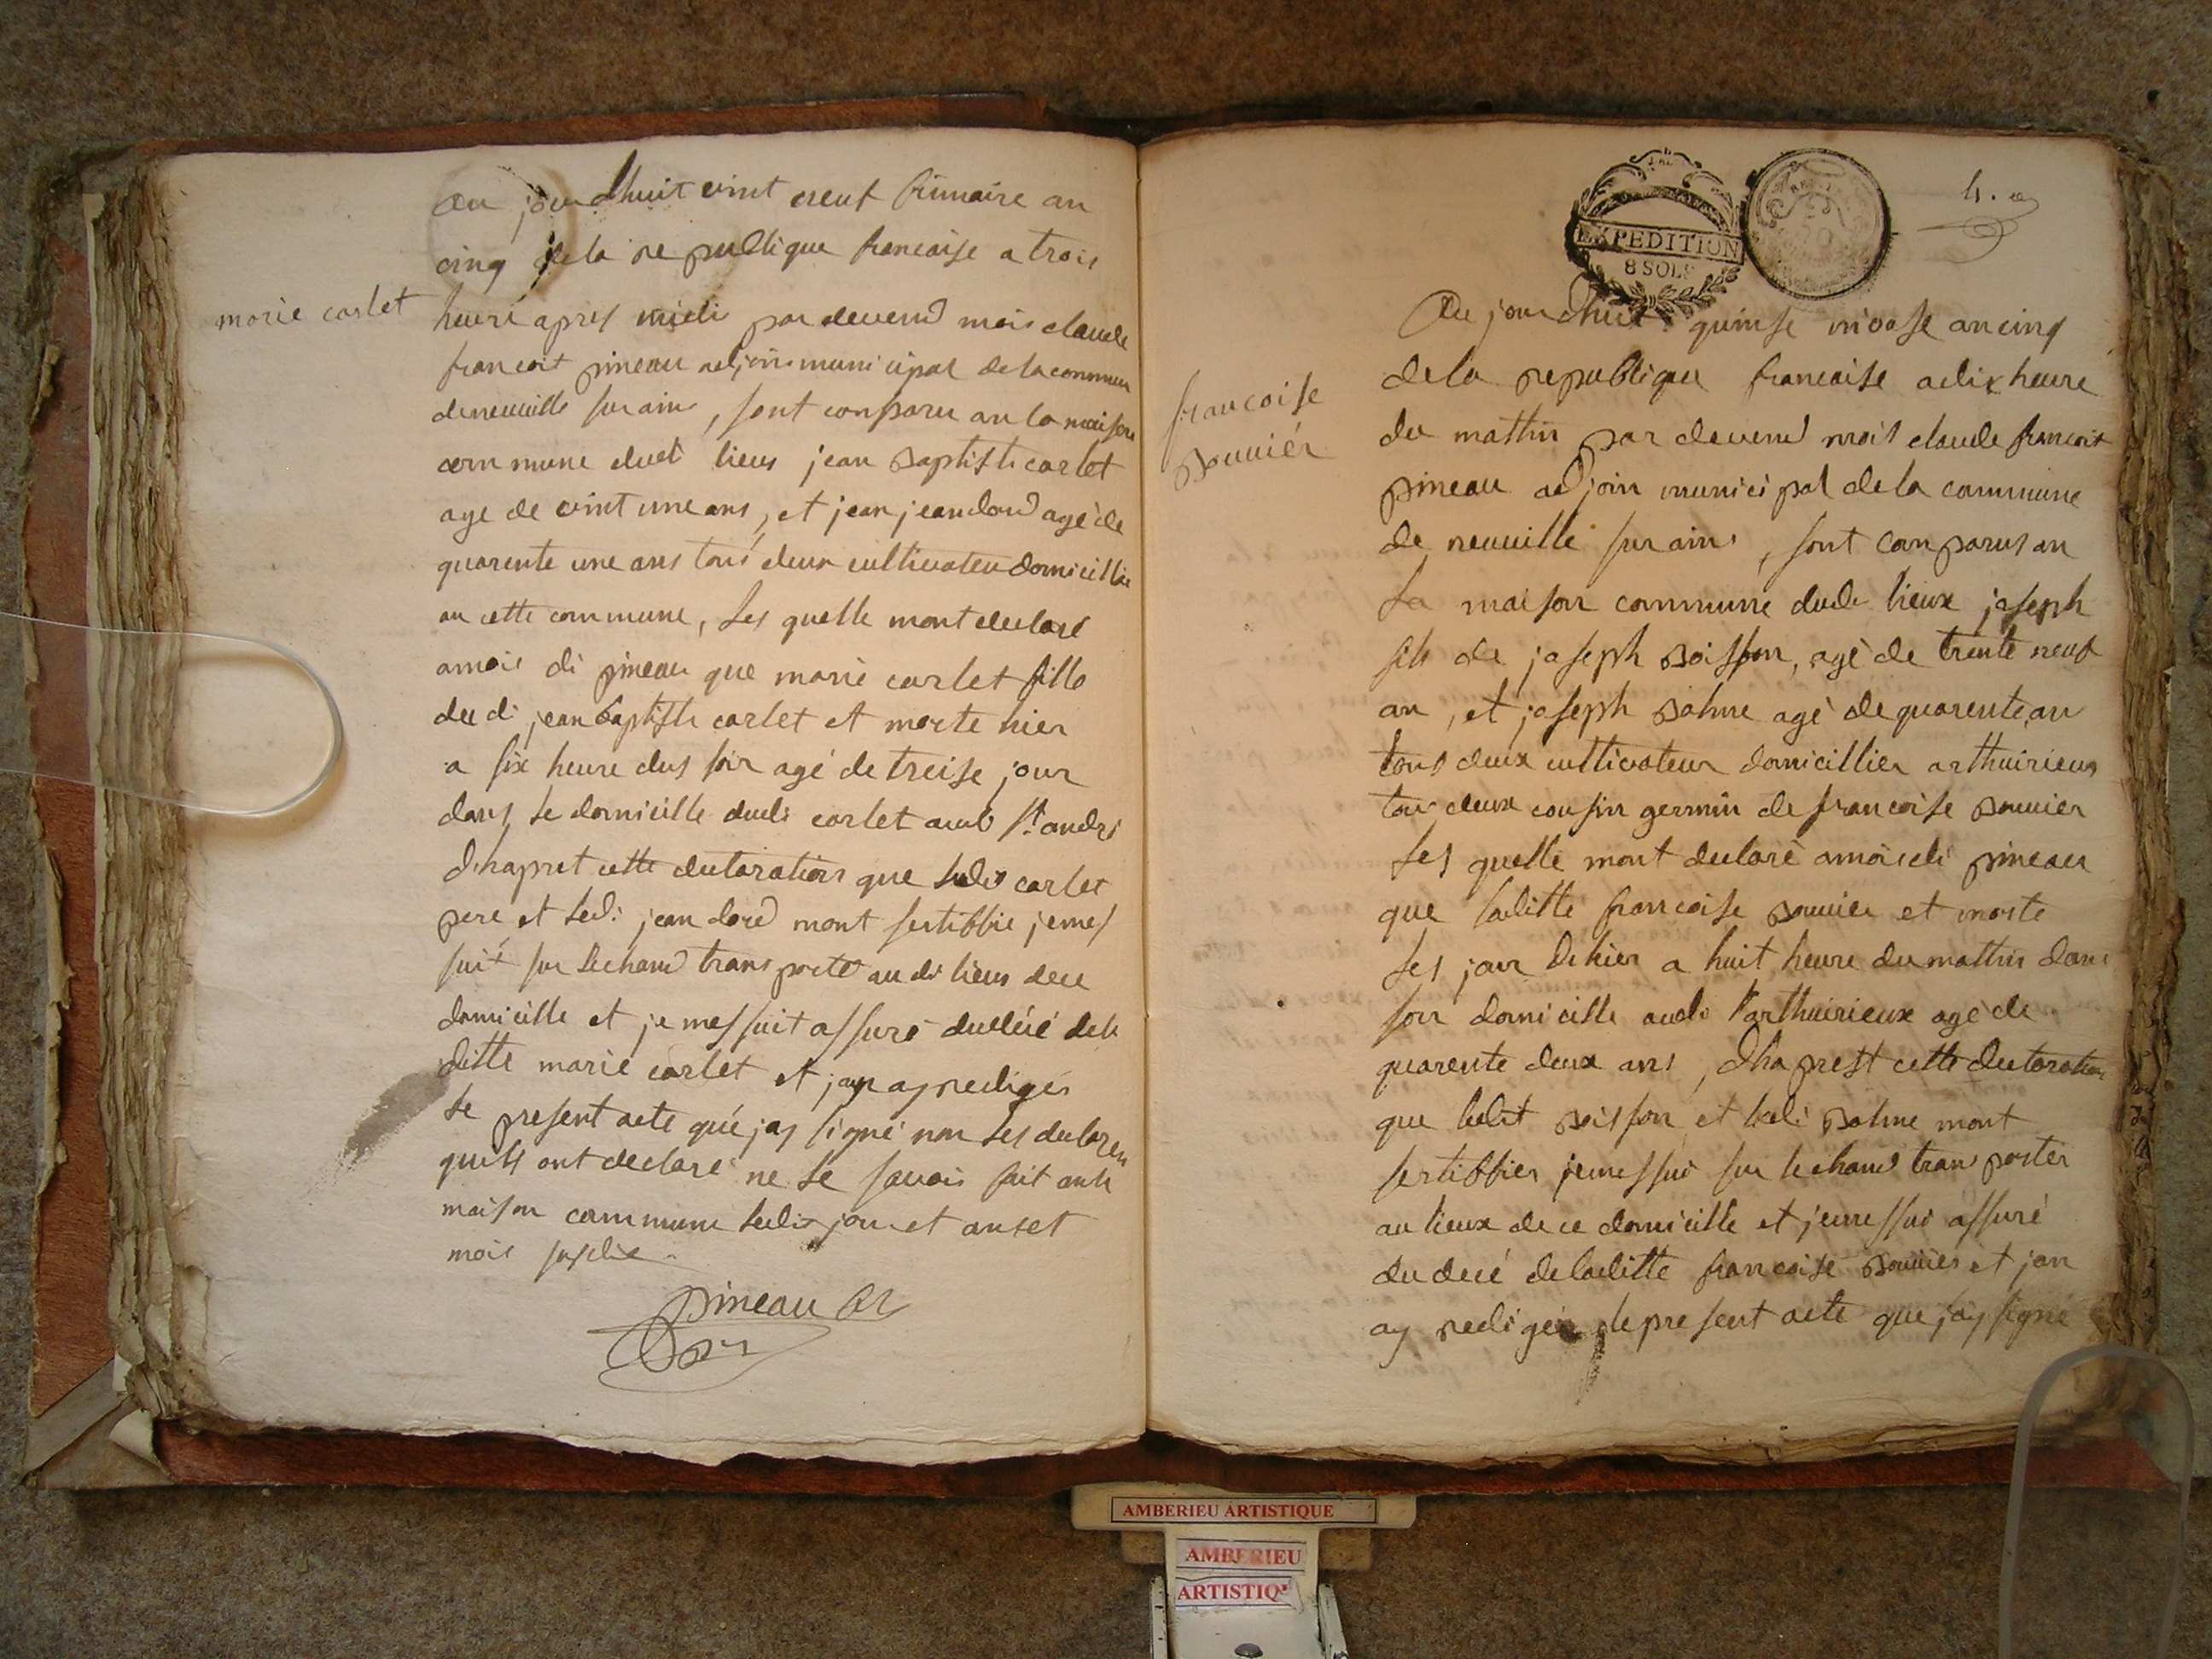 au jourdhuit vint neuf frimaire an
cinq de la republique francaise a trois
marie carlet
heure apres midi par devend mois claude
francoit pineau adjoin municipal de la commun
de neuville sur ains, sont conparu an la maison
commune dudi lieus jean Baptiste carlet
age de vint une ans, et jean jeandard agé de
quarente une ans tous deux cultivateu domicillie
an cette commune, les quelle mont declaré
amois di pineau que marie carlet fille
du di jean baptiste carlet et morte hier
a six heure dus soir agé de treise jour
dans le domicille dudi carlet audi st andre
dhapret cette declaration que ledis carlet
pere et ledi jean dard mont sertiffie jemes
suit sur lechand transporte au di lieus dece
domicille et je mes suit assuré du décé dela
ditte marie carlet et jan ay redigés
le present acte que jay signé non les declaren
quils ont declaré ne le savoir fait an la
maison commune ledis jour et an et
mois susdie
pineau
4.e
EXPEDITION
8 SOLS
Au jourdhuit quinse nivose an cinq
de la republique francaise a dix heure
francoise
bouvier
du mattin par devend mois claude francoit
pineau adjoin municipal de la commune
de neuville sur ains, sont conparus an
La maison commune dudi lieux joseph
fils de joseph Boisson, agé de trente neuf
an, et joseph Balme agé de quarente an
tous deux cultivateur domicillier arthuirieux
tous deux cousin germin de francoise bouvier
les quelle mont declaré amois di pineau
que laditte francoise bouvier et morte
les jour dehier a huit heure du mattin dans
son domicille audi arthuirieux agé de
quarente deux ans, dhaprest cette declaration
que ledit boisson et ledi balme mont
sertiffier jemes sui sur lechand transporter
au lieux de ce domicille et jemes sui assuré
du decé de laditte francoise bouvier et jan
ay rediger le present acte que jay signé
AMBERIEU ARTISTIQUE
AMBERIEU
ARTISTIQU